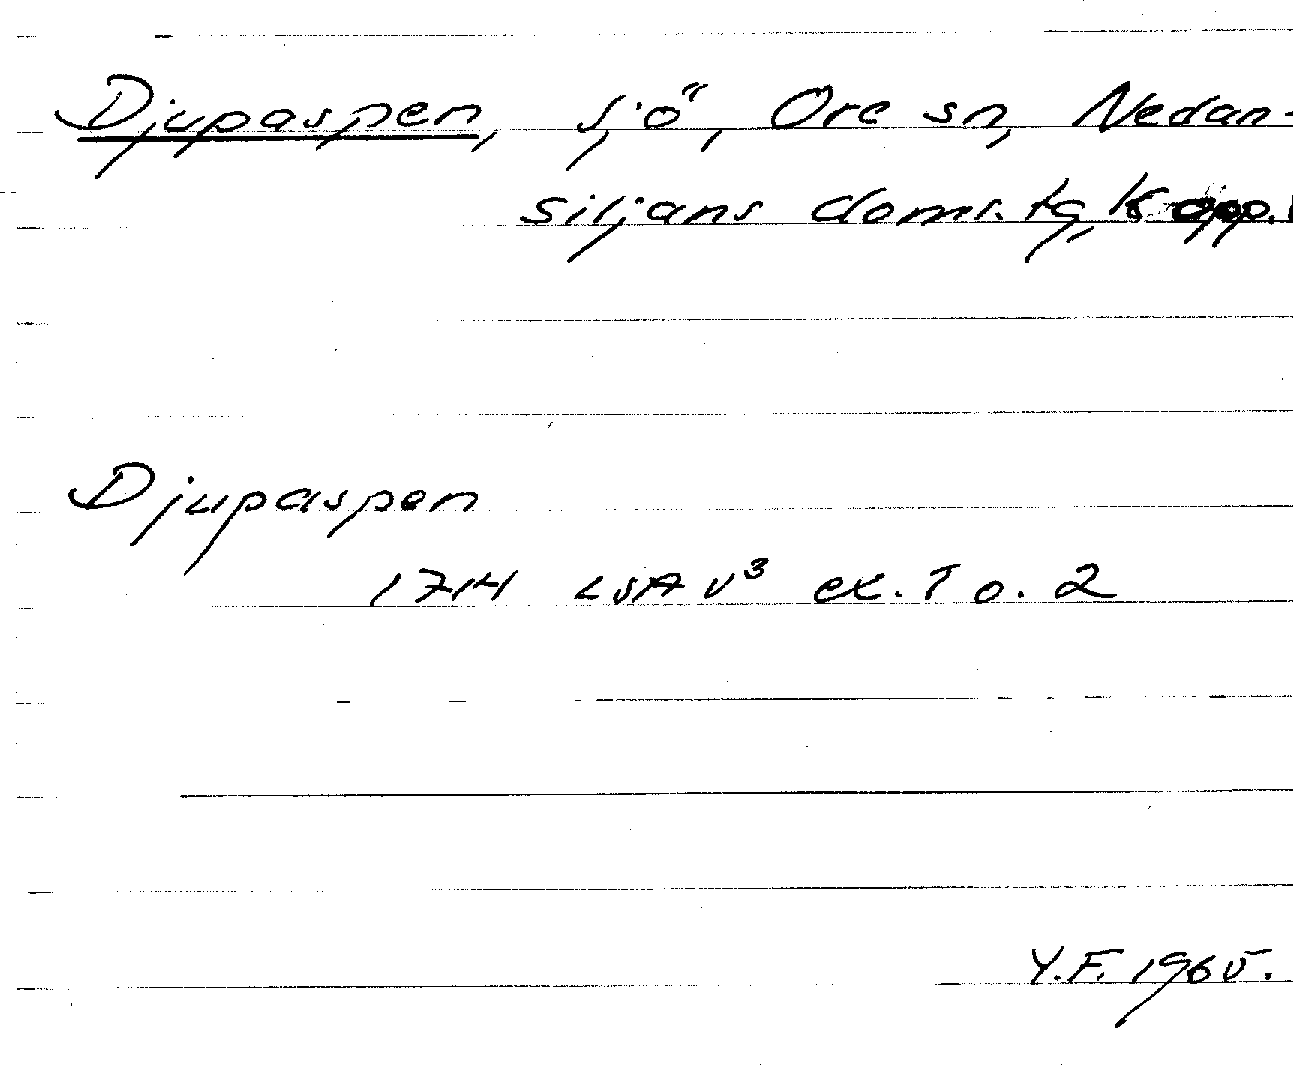 Djupaspen, sjö, Ore sn, Nedan-
siljans doms.tg, Kopp.
Djupaspen
1714 LSA V³ ex. T o. 2
Y.F. 1965.